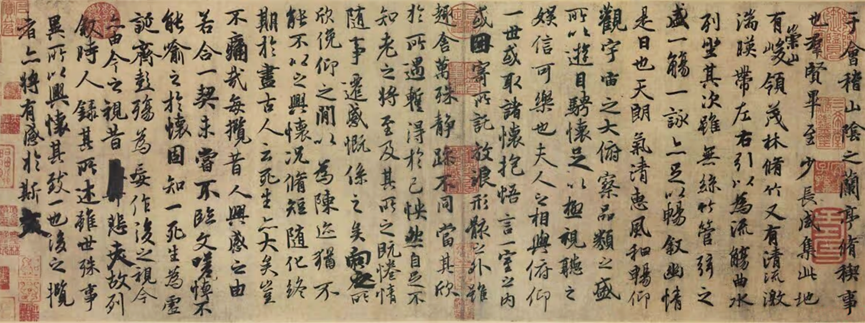 于會稽山陰之蘭亭脩稧事
也羣賢畢至少長咸集此地
有崇山峻領茂林脩竹又有清流激
湍暎帶左右引以為流觴曲水
列坐其次雖無絲竹管弦之
盛一觴一詠亦足以暢叙幽情
是日也天朗氣清惠風和暢仰
觀宇宙之大俯察品類之盛
所以遊目騁懷足以極視聽之
娛信可樂也夫人之相與俯仰
一世或取諸懷抱悟言一室之內
或因寄所託放浪形骸之外雖
趣舍萬殊静躁不同當其欣
於所遇暫得於己怏然自足不
知老之將至及其所之既惓情
隨事遷感慨係之矣向之所
欣俛仰之閒以為陳迹猶不
能不以之興懷況脩短隨化終
期於盡古人云死生亦大矣豈
不痛哉每攬昔人興感之由
若合一契未嘗不臨文嗟悼不
能喻之於懷固知一死生為虛
誕齊彭殤為妄作後之視今
亦由今之視昔悲夫故列
叙時人錄其所述雖世殊事
異所以興懷其致一也後之攬
者亦將有感於斯文